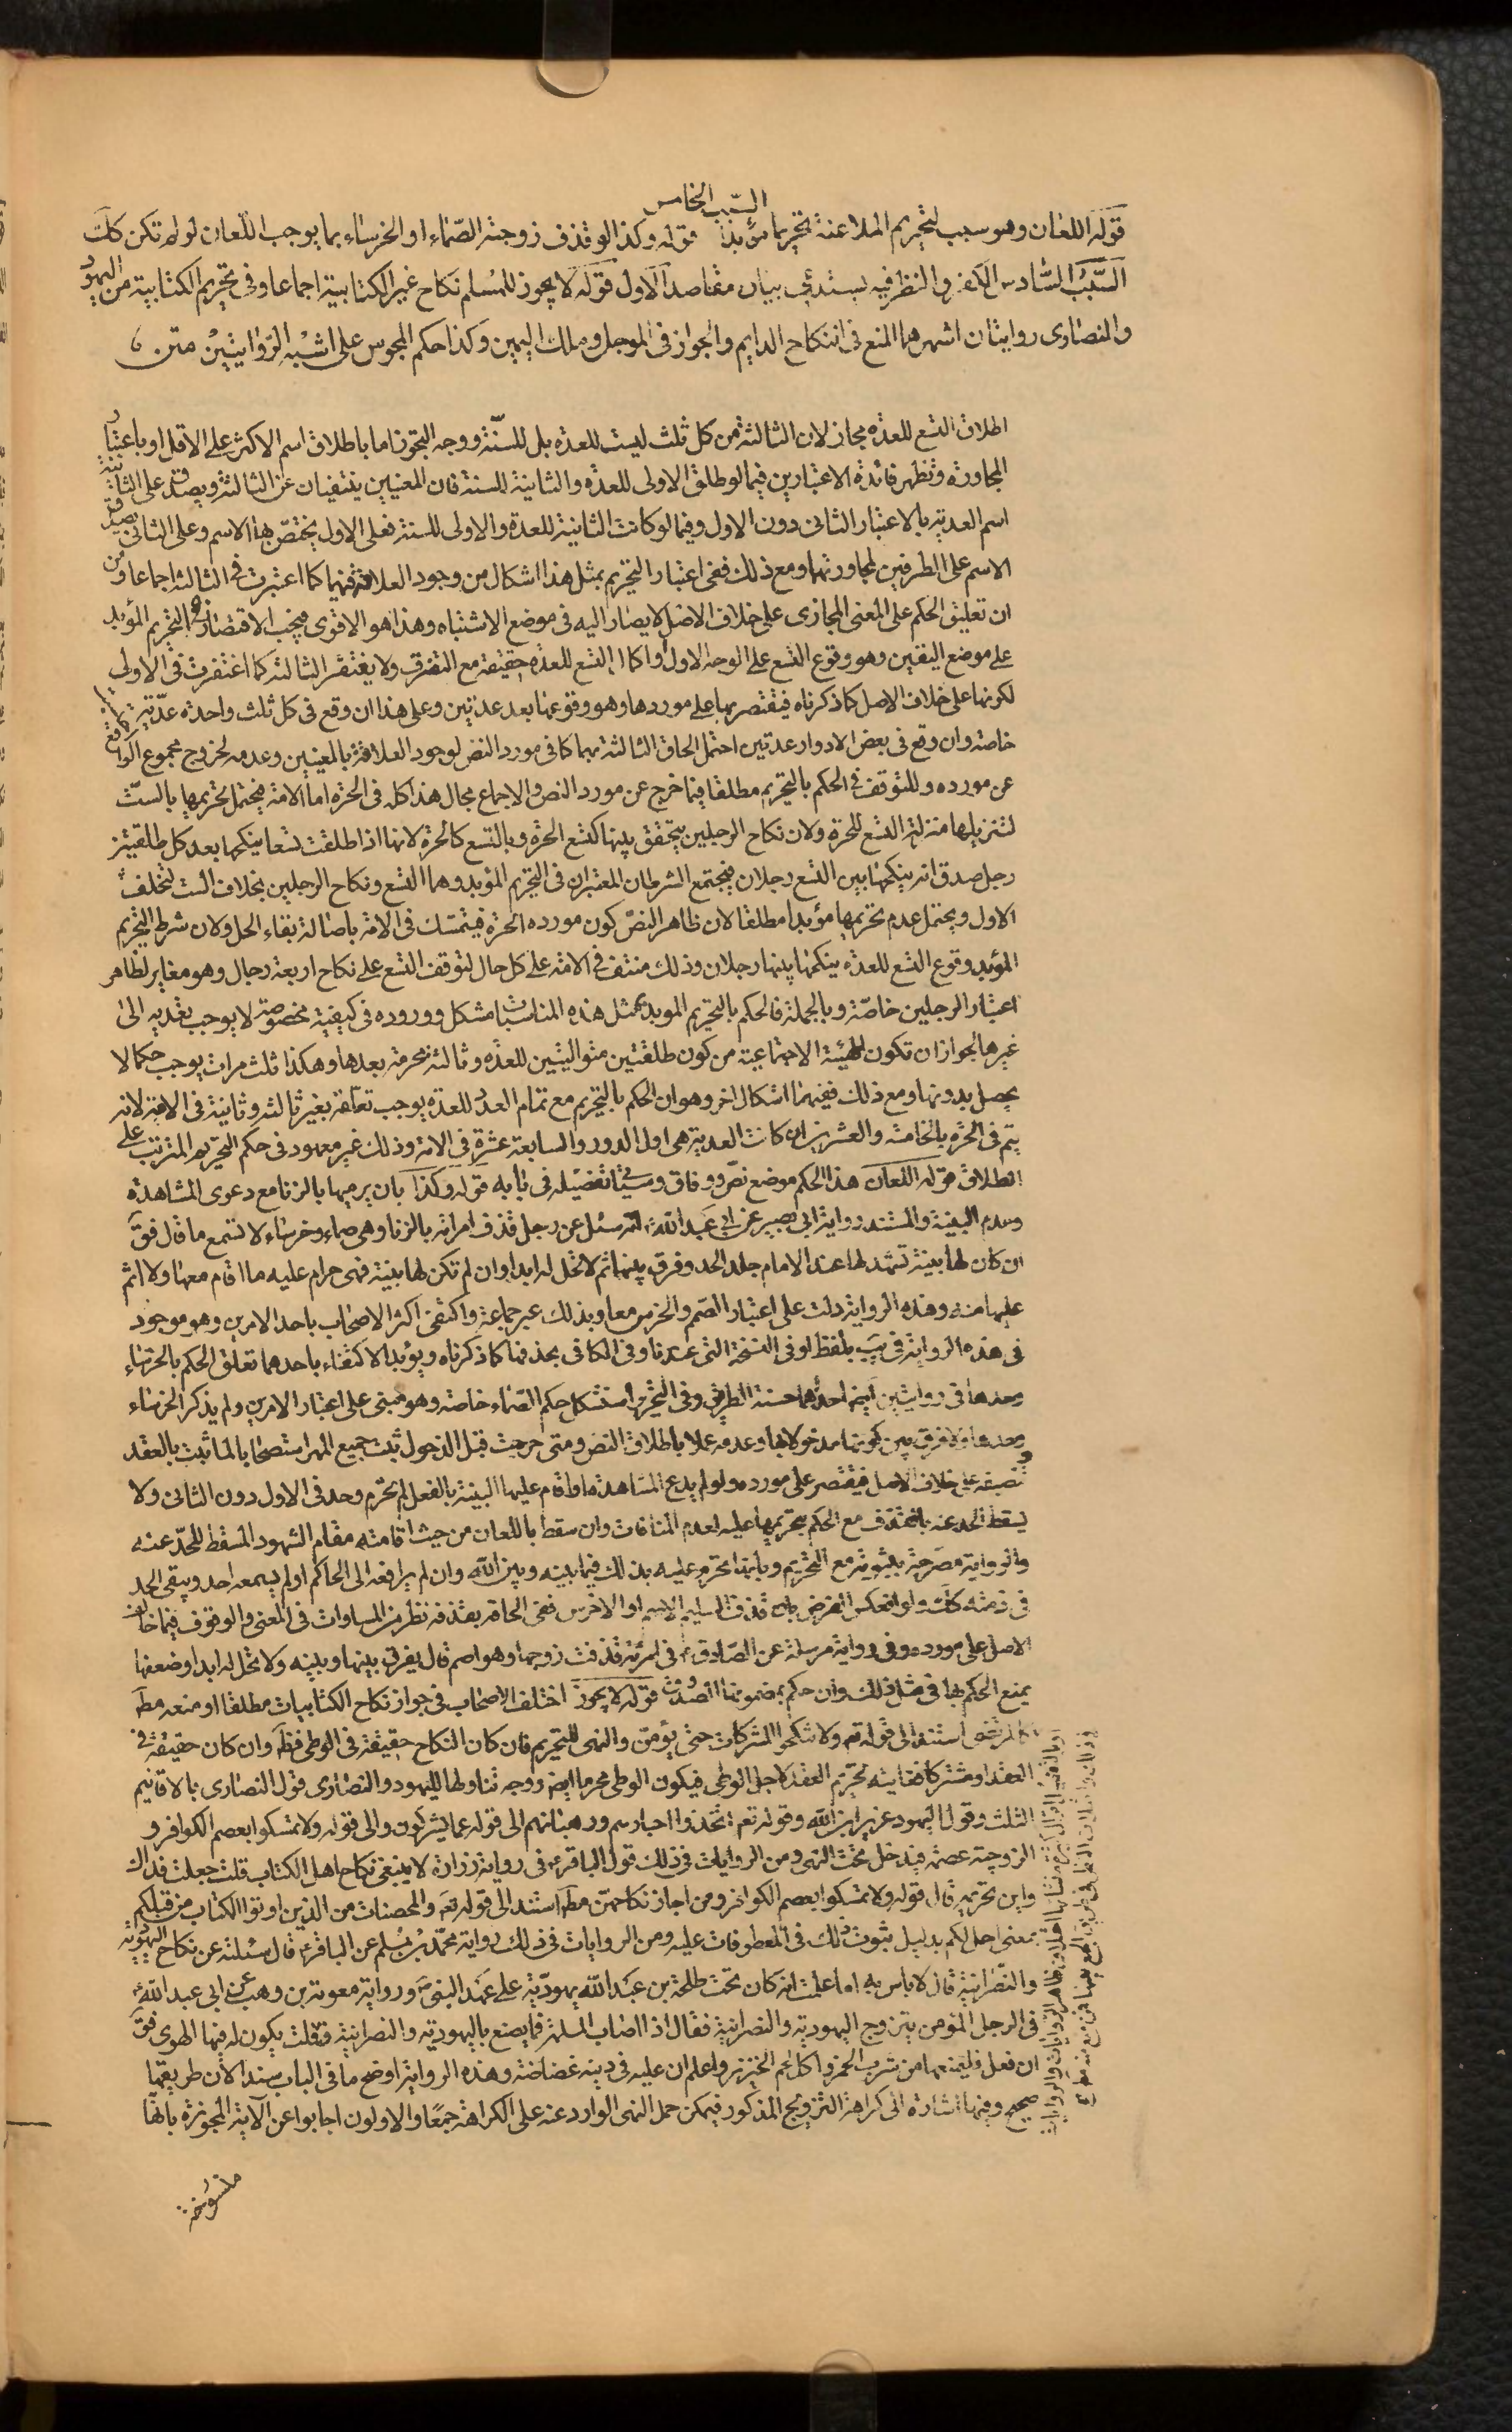 السّبب الخامس
قوله اللعان وهو سبب لتحريم الملاعنة تحريما مؤبدا قوله وكذا لو قذف زوجته الصّماء او الخرساء بما يوجب اللّعان لو لم تكن كك
السّبب السّادس الكفر والنظر فيه يستدعي بيان مقاصد الاول قوله لا يجوز للمسلم نكاح غير الكتابية اجماعا وفى تحريم الكتابية من اليهود
والنصارى روايتان اشهرهما المنع فى النكاح الدايم والجواز فى الموجل وملك اليمين وكذا حكم المجوس على اشبه الرّوايتين متن
اطلاق التسع للعدة مجاز لان الثالثة من كل ثلث ليست للعدة بل للسنّة ووجه التجوز اما باطلاق اسم الاكثر على الاقل او باعتبار
المجاورة وتظهر فائدة الاعتبارين فيما لو طلق الاولى للعدة والثانية للسنة فان المعنيين ينتفيان عن الثالثة ويصدق على الثانية
اسم العدية بالاعتبار الثانى دون الاول وفيما لو كانت الثانية للعدة والاولى للسنة فعلى الاول يختصّ بها الاسم وعلى الثانى يصدق
الاسم على الطرفين لمجاورتهما ومع ذلك ففى اعتبار التحريم بمثل هذا اشكال من وجود العلاقة فيهما كما اعتبرت فى الثالثة اجماعا ومن
ان تعليق الحكم على المعنى المجازى على خلاف الاصل لا يصار اليه فى موضع الاشتباه وهذا هو الاقوى فيجب الاقتصار فى التحريم المؤبد
على موضع اليقين وهو وقوع التسع على الوجه الاول او اكمال التسع للعدة حقيقة مع التفرق ولا يغتفر الثالثة كما اغتفرت فى الاولى
لكونها على خلاف الاصل كما ذكرناه فيقتصر بها على موردها وهو وقوعها بعد عدتين وعلى هذا ان وقع فى كل ثلث واحدة عدّية
خاصة وان وقع فى بعض الادوار عدتين احتمل الحاق الثالثة بهما كما فى مورد النص لوجود العلاقة بالمعنيين وعدمه لخروج مجموع الواقع
عن مورده وللتوقف فى الحكم بالتحريم مطلقا فيما خرج عن مورد النص والاجماع مجال هذا كله فى الحرة اما الامة فيحتمل تحريمها بالستّ
لتنزيلها منزلة التسع للحرة ولان نكاح الرجلين يتحقق بينها كتسع الحرة وبالتسع كالحرة لانها اذا طلقت تسعا ينكحها بعد كل طلقتين
رجل صدق انه ينكحها بين التسع رجلان فيجتمع الشرطان المعتبران فى التحريم المؤبد وهما التسع ونكاح الرجلين بخلاف الست لتخلف
الاول ويحتمل عدم تحريمها مؤبدا مطلقا لان ظاهر النصّ كون مورده الحرة فيتمسّك فى الامة باصالة بقاء الحل ولان شرط التحريم
المؤبد وقوع التسع للعدة ينكحها بينها رجلان وذلك منتف فى الامة على كل حال لتوقف التسع على نكاح اربعة رجال وهو مغاير لظاهر
اعتبار الرجلين خاصّة وبالجملة فالحكم بالتحريم الموبد بمثل هذه المناسبات مشكل ووروده فى كيفية مخصوصة لا يوجب تعديه الى
غيرها لجواز ان تكون للهيئة الاجتماعية من كون طلقتين متواليتين للعدة وثالثة محرمة بعدها وهكذا ثلث مرات يوجب حكما لا
يحصل بدونها ومع ذلك ففيهما اشكال اخر وهو ان الحكم بالتحريم مع تمام العدد للعدة يوجب تعلّقه بغير ثالثة وثانية فى الامة لانه
يتم فى الحرة بالخامسة والعشرين ان كانت العدية هى اول الدور والسابعة عشرة فى الامة وذلك غير معهود فى حكم التحريم المترتب على
الطلاق قوله اللعان هذا الحكم موضع نصّ ووفاق وسيأتى تفصيله فى بابه قوله وكذا بان يرميها بالزنا مع دعوى المشاهدة
وعدم البينة والمستند رواية ابى بصير عن ابى عبد الله ع انه سئل عن رجل قذف امراته بالزنا وهى صماء وخرساء لا تسمع ما قال فق
ان كان لها بينة تشهد لها عند الامام جلد الحد وفرق بينهما ثم لا تحل له ابدا وان لم تكن لها بينة فهى حرام عليه ما اقام معها ولا اثم
عليها منه وهذه الرواية دلت على اعتبار الصّم والخرس معا وبذلك عبر جماعة واكتفى اكثر الاصحاب باحد الامرين وهو موجود
فى هذه الرواية فى يب بلفظ او فى النسخة التى عندنا وفى الكافى بحذفها كما ذكرناه ويؤيد الاكتفاء باحدهما تعلق الحكم بالخرساء
وحدها فى روايتين ايضا احدهما حسنة الطريق وفى التحرير استشكل حكم الصّماء خاصة وهو مبنى على اعتبار الامرين ولم يذكر الخرساء
وحدها ولا فرق بين كونها مدخولا بها وعدمه عملا باطلاق النص ومتى حرمت قبل الدخول ثبت جميع المهر استصحابا لما ثبت بالعقد
وتنصيفه على خلاف الاصل فيقتصر على مورده ولو لم يدع المشاهدة او اقام عليها البينة بالفعل لم تحرم وحد فى الاول دون الثانى ولا
يسقط الحد عنه بالقذف مع الحكم بتحريمها عليه لعدم المنافات وان سقط باللعان من حيث اقامته مقام الشهود المسقط للحدّ عنه
والرواية مصرحة بثبوته مع التحريم وبانها تحرم عليه بذلك فيما بينه وبين الله وان لم يرافعه الى الحاكم او لم يسمعه احد ويبقى الحد
فى ذمته كك ولو انعكس الفرض بان قذفت السليمة الاصم او الاخرس ففى الحاقه بقذفه نظر من المساوات فى المعنى والوقوف فيما خالف
الاصل على مورده وفى رواية مرسلة عن الصّادق ع فى امرئة قذفت زوجها وهو اصم قال يفرق بينها وبينه ولا تحل له ابدا وضعفها
يمنع الحكم بها فى مثل ذلك وان حكم بمضمونها الصّدوق قوله لا يجوز اختلف الاصحاب فى جواز نكاح الكتابيات مطلقا او منعه مطَ
كالمرتضى استنادا الى قوله تع ولا تنكحوا المشركات حتى يؤمنّ والنهى للتحريم فان كان النكاح حقيقة فى الوطى فظَ وان كان حقيقة فى
العقد او مشتركا فغايته تحريم العقد لاجل الوطى فيكون الوطى محرما ايض ووجه تناولها لليهود والنصارى قول النصارى بالاقانيم
الثلث وقول اليهود عزير ابن الله وقوله تع اتخذوا احبارهم ورهبانهم الى قوله عما يشركون والى قوله ولا تمسكوا بعصم الكوافر و
الزوجية عصمة فيدخل تحت النهى ومن الروايات فى ذلك قول الباقر ع فى رواية زرارة لا ينبغى نكاح اهل الكتاب قلت جعلت فداك
واين تحريمه قال قوله ولا تمسكوا بعصم الكوافر ومن اجاز نكاحهنّ مطَ استند الى قوله تع والمحصنات من الذين اوتوا الكتاب من قبلكم
بمعنى احل لكم بدليل ثبوت ذلك فى المعطوفات عليه ومن الروايات فى ذلك رواية محمّد بن مسلم عن الباقر ع قال سئلته عن نكاح اليهوديّة
والنّصرانية قال لا باس به اما علمت انه كان تحت طلحة بن عبد الله يهوديّة على عهد النبىّ ص ورواية معوية بن وهب عن ابى عبد الله ع
فى الرجل المؤمن يتزوج اليهودية والنصرانية فقال اذا اصاب المسلمة فما يصنع باليهودية والنصرانية فقلت يكون له فيها الهوى فق
ان فعل فليمنعها من شرب الخمر واكل لحم الخنزير واعلم ان عليه فى دينه غضاضة وهذه الرواية اوضح ما فى الباب سندا لان طريقها
صحيح وفيها اشارة الى كراهة التزويج المذكور فيمكن حمل النهى الوارد عنه على الكراهة جمعًا والاولون اجابوا عن الآية المجوّزة بانّها
منسوخة